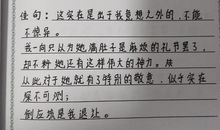 佳句：这实在是出于我意想人外的，不能
不惊异。
我一向只以为她满肚子是麻烦的礼节罢了，
却不料她还有这样伟大的神力。
从此对于她就有了特别的敬意，似乎实在
深不可测；